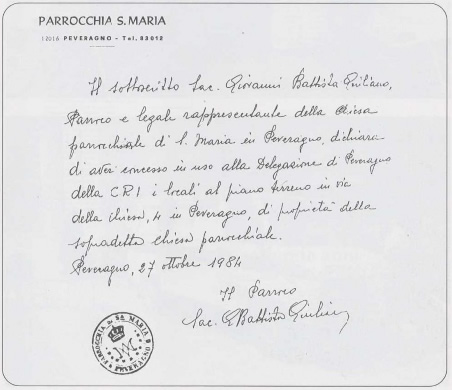 PARROCCHIA S. MARIA
12016 PEVERAGNO - Tel. 83012
Il sottoscritto Sac. Giovanni Battista Giuliano,
Parroco e legale rappresentante della Chiesa
parrocchiale di S. Maria in Peveragno, dichiara
di aver concesso in uso alla Delegazione di Peveragno
della CRI i locali al piano terreno in via
della Chiesa, 4 in Peveragno, di proprietà della
sopradetta Chiesa parrocchiale.
Peveragno, 27 ottobre 1984
Il Parroco
Sac. G Battista Giuliano
PARROCCHIA DI S. MARIA
PEVERAGNO